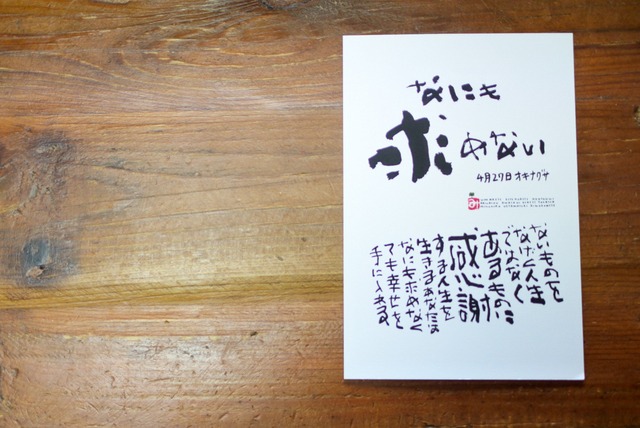 なにも
求めない
4月27日 オキナグサ
ないものを
なげく人生
ではなく
あるものに
感謝
する人生を
生きるあなたは
なにも求めなく
ても幸せを
手に入れる